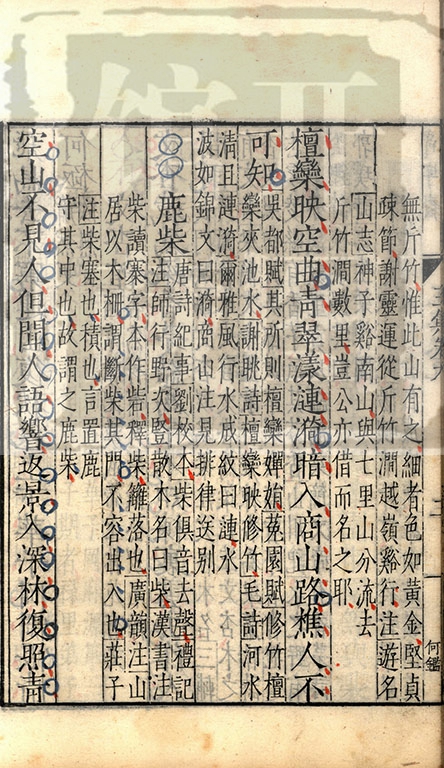 無斤竹惟此山有之細者色如黃金堅貞
疎節謝靈運從斤竹澗越嶺谿行注遊名
山志神子谿南山與七里山分流去
斤竹澗數里豈公亦借而名之耶
檀欒映空曲青翠漾漣漪暗入商山路樵人不
可知
吳都賦其所則檀欒嬋娟菟園賦脩竹檀
欒夾池水謝朓詩檀欒映修竹毛詩河水
清且漣漪爾雅風行水成紋曰漣水
波如錦文曰漪商山注見排律送別
鹿柴
唐詩紀事劉校本柴俱音去聲禮記
注師行野次豎散木名曰柴漢書注
柴讀寨字本作砦釋柴籬落也廣韻注山
居以木柵謂柴其門不容出入也莊子
注柴塞也積也言置鹿
守其中也故謂之鹿柴
空山不見人但聞人語響返景入深林復照青
何鑑